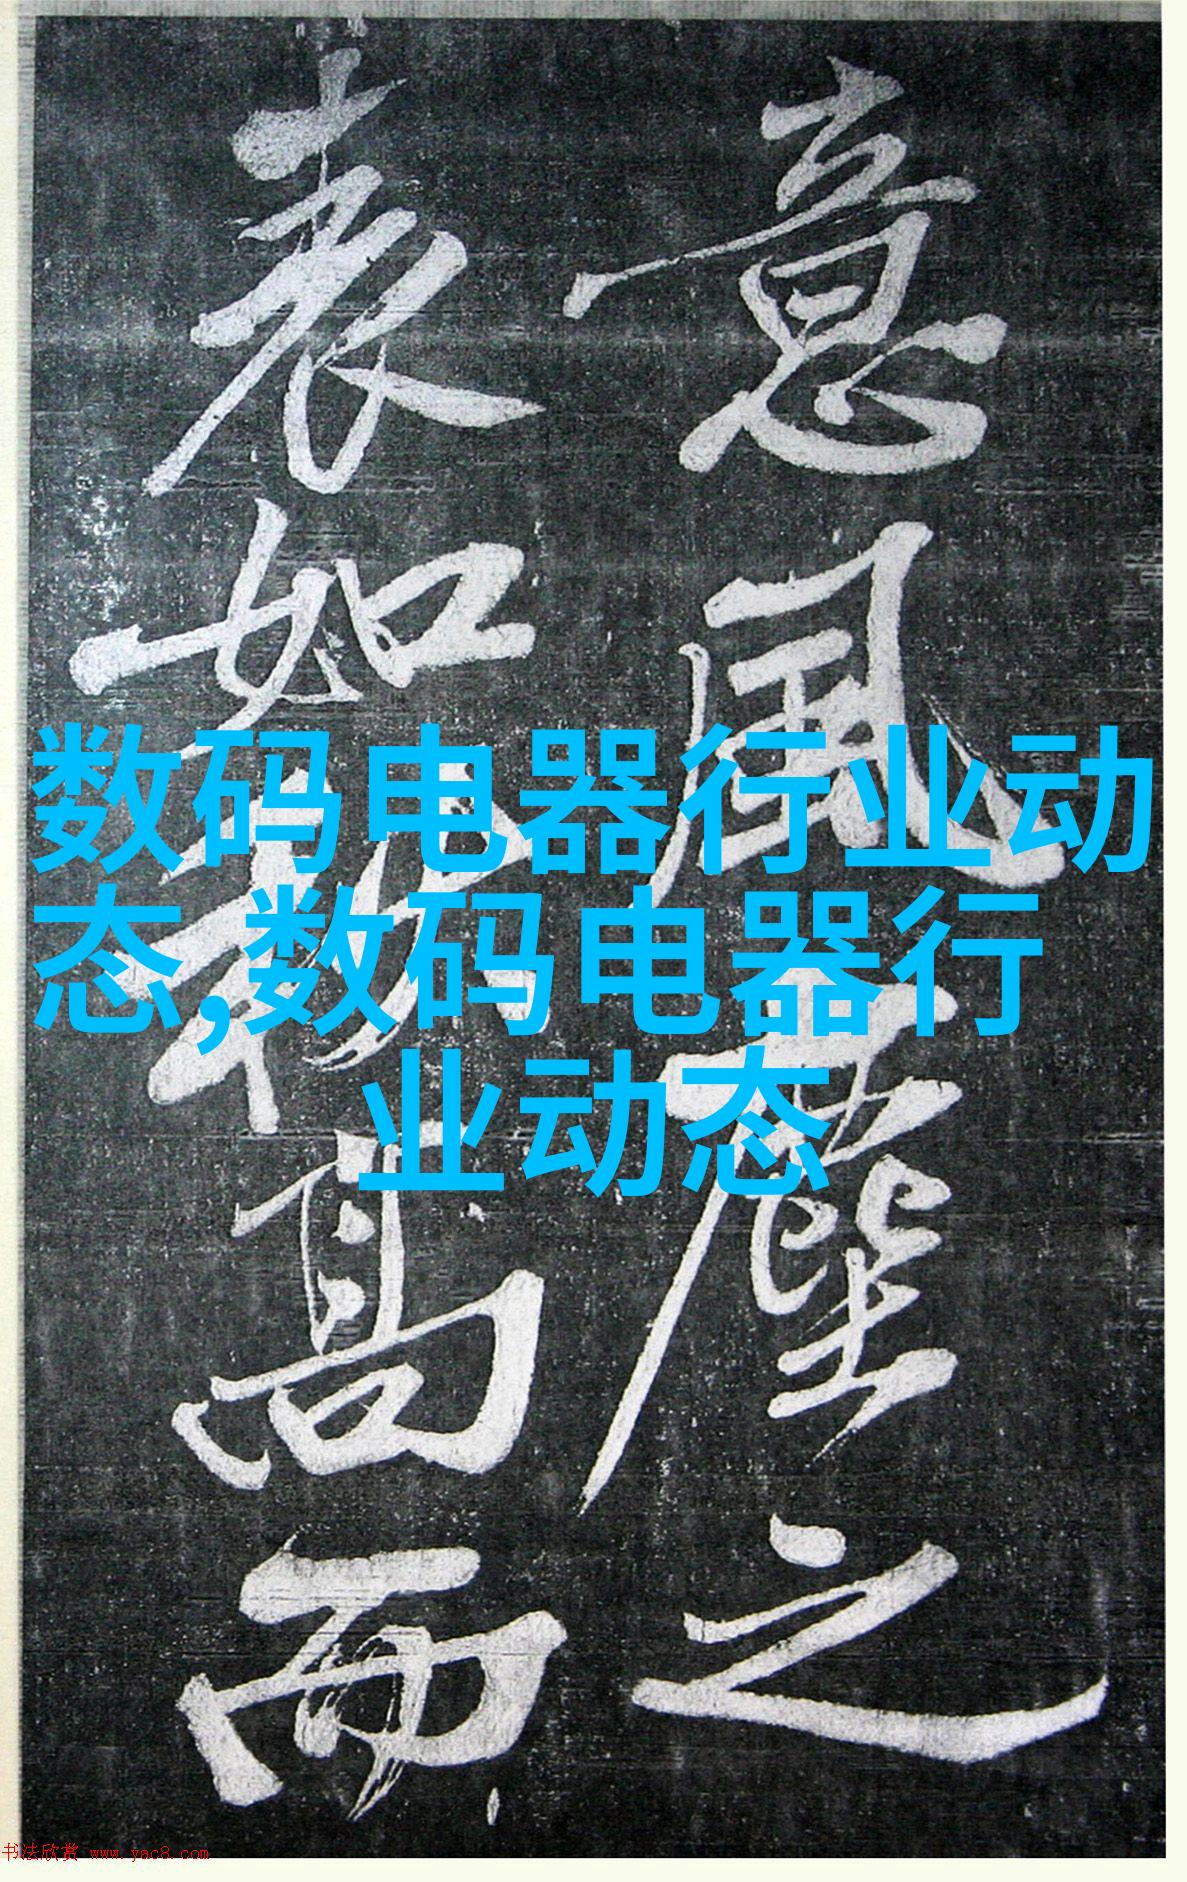 意風塵之
表如秋高而
数码电器行业动
态,数码电器行
业动态
书法欣赏 www.yac8.com